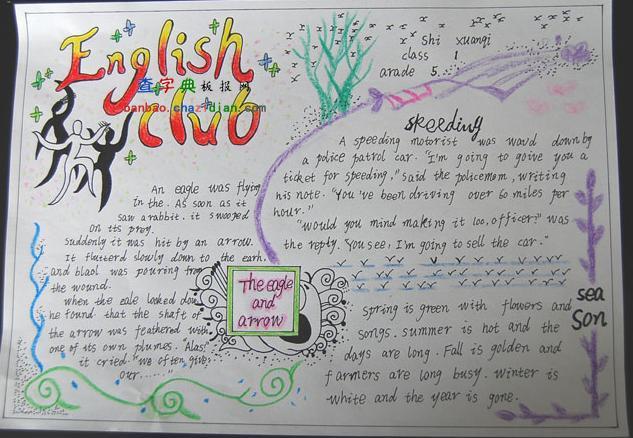 English
club
查字典板报网
banbao.chazidian.com
Shi xuanqi
class 1
arade 5
speeding
A speeding motorist was wavd down by
a police patrol car. "I'm going to goive you a
ticket for speeding," said the policemom, writing
his note. "You've been driving over 60 miles per
hour."
"Would you mind making it 100, officer?" was
the reply. You see, I'm going to sell the car."
An eagle was flying
in the. As soon as it
saw arabbit. it swooped
on its prey.
Suddenly it was hit by an arrow.
It flutterd slowly down to the earh.
and blaol was pouring from
the wound.
when the eale looked down
he found that the shaft of
the arrow was feathered with
one of its own plumes. "Alas!"
it cried. "we often give
our......"
The eagle
and
arrow
sea
Son
spring is green with flowers and
songs. summer is hot and the
days are long. Fall is golden and
farmers are long busy. winter is
white and the year is gone.